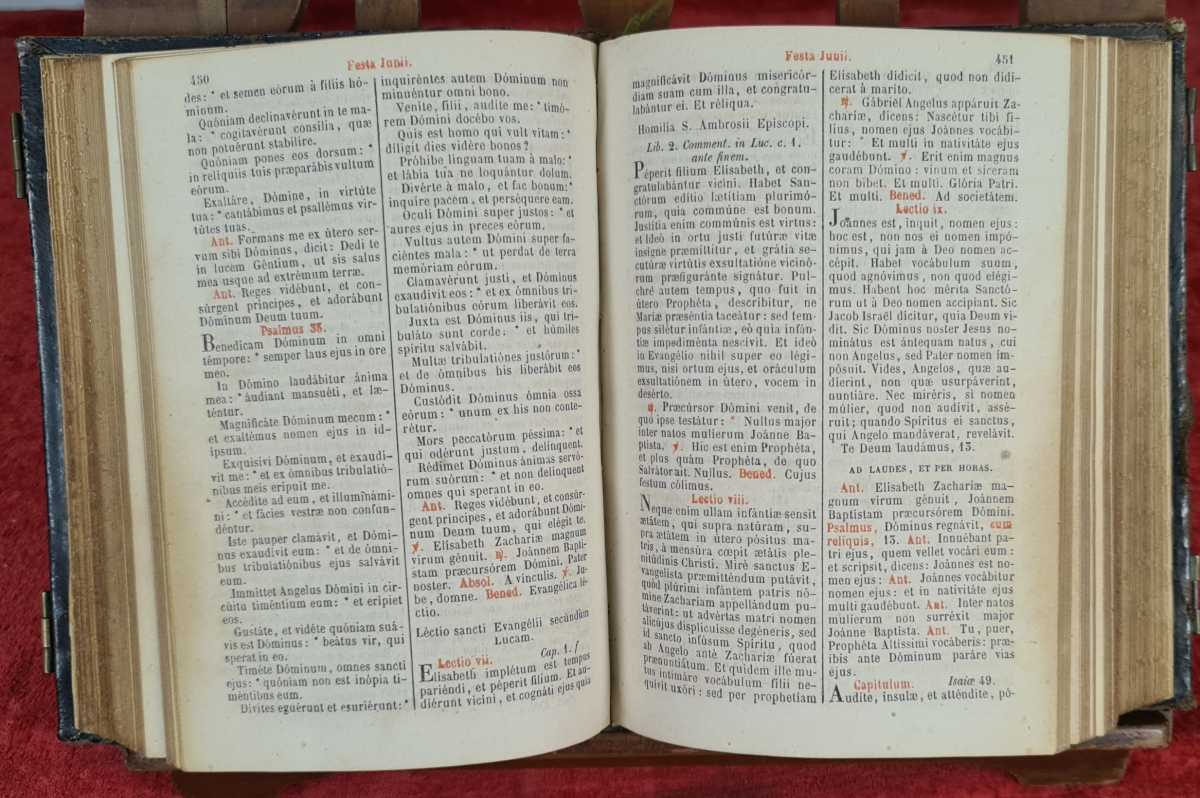 450
Festa Junii.
des: * et semen eórum à fíliis hó-
minum.
Quóniam declinavérunt in te ma-
la: * cogitavérunt consília, quæ
non potuérunt stabilíre.
Quóniam pones eos dorsum: *
in relíquiis tuis præparábis vultum
eórum.
Exaltáre, Dómine, in virtúte
tua: * cantábimus et psallémus vir-
tútes tuas.
Ant. Formans me ex útero ser-
vum sibi Dóminus, dicit: Dedi te
in lucem Géntium, ut sis salus
mea usque ad extrémum terræ.
Ant. Reges vidébunt, et con-
súrgent príncipes, et adorábunt
Dóminum Deum tuum.
Psalmus 33.
Benedícam Dóminum in omni
témpore: * semper laus ejus in ore
meo.
In Dómino laudábitur ánima
mea: * áudiant mansuéti, et læ-
téntur.
Magnificáte Dóminum mecum: *
et exaltémus nomen ejus in id-
ípsum.
Exquisívi Dóminum, et exaudí-
vit me: * et ex ómnibus tribulatió-
nibus meis erípuit me.
Accédite ad eum, et illuminámi-
ni: * et fácies vestræ non confun-
déntur.
Iste pauper clamávit, et Dómi-
nus exaudívit eum: * et de ómni-
bus tribulatiónibus ejus salvávit
eum.
Immíttet Angelus Dómini in cir-
cúitu timéntium eum: * et erípiet
eos.
Gustáte, et vidéte quóniam suá-
vis est Dóminus: * beátus vir, qui
sperat in eo.
Timéte Dóminum, omnes sancti
ejus: * quóniam non est inópia ti-
méntibus eum.
Dívites eguérunt et esuriérunt: *
inquiréntes autem Dóminum non
minuéntur omni bono.
Veníte, fílii, audíte me: * timó-
rem Dómini docébo vos.
Quis est homo qui vult vitam: *
díligit dies vidére bonos?
Próhibe linguam tuam à malo: *
et lábia tua ne loquántur dolum.
Divérte à malo, et fac bonum: *
inquíre pacem, et perséquere eam.
Oculi Dómini super justos: * et
aures ejus in preces eórum.
Vultus autem Dómini super fa-
ciéntes mala: * ut perdat de terra
memóriam eórum.
Clamavérunt justi, et Dóminus
exaudívit eos: * et ex ómnibus tri-
bulatiónibus eórum liberávit eos.
Juxta est Dóminus iis, qui tri-
buláto sunt corde: * et húmiles
spíritu salvábit.
Multæ tribulatiónes justórum: *
et de ómnibus his liberábit eos
Dóminus.
Custódit Dóminus ómnia ossa
eórum: * unum ex his non conte-
rétur.
Mors peccatórum péssima: * et
qui odérunt justum, delínquent.
Rédimet Dóminus ánimas servó-
rum suórum: * et non delínquent
omnes qui sperant in eo.
Ant. Reges vidébunt, et consúr-
gent príncipes, et adorábunt Dómi-
num Deum tuum, qui elégit te.
℣. Elísabeth Zacharíæ magnum
virum génuit. ℟. Joánnem Baptí-
stam præcursórem Dómini. Pater
noster. Absol. A vínculis. ℣. Ju-
be, domne. Bened. Evangélica lé-
ctio.
Léctio sancti Evangélii secúndùm
Lucam.
Lectio vii.
Cap. 1. f
Elísabeth implétum est tempus
pariéndi, et péperit fílium. Et au-
diérunt vicíni, et cognáti ejus quia
Festa Junii.
451
magnificávit Dóminus misericór-
diam suam cum illa, et congratu-
labántur ei. Et réliqua.
Homilía S. Ambrósii Epíscopi.
Lib. 2. Comment. in Luc. c. 1.
ante finem.
Péperit fílium Elísabeth, et con-
gratulabántur vicíni. Habet San-
ctórum edítio lætítiam plurimó-
rum, quia commúne est bonum.
Justítia enim commúnis est virtus:
et ídeò in ortu justi futúræ vitæ
insígne præmíttitur, et grátia se-
cutúræ virtútis exsultatióne vicinó-
rum præfiguránte signátur. Pul-
chrè autem tempus, quo fuit in
útero Prophéta, descríbitur, ne
Maríæ præséntia taceátur: sed tem-
pus silétur infántiæ, eò quia infán-
tiæ impediménta nescívit. Et ídeò
in Evangélio nihil super eo légi-
mus, nisi ortum ejus, et oráculum
exsultatiónem in útero, vocem in
desérto.
℟. Præcúrsor Dómini venit, de
quo ipse testátur: * Nullus major
inter natos mulíerum Joánne Ba-
ptísta. ℣. Hic est enim Prophéta,
et plus quàm Prophéta, de quo
Salvátor ait. Nullus. Bened. Cujus
festum cólimus.
Lectio viii.
Neque enim ullam infántiæ sensit
ætátem, qui supra natúram, su-
pra ætátem in útero pósitus ma-
tris, à mensúra cœpit ætátis ple-
nitúdinis Christi. Mirè sanctus E-
vangelísta præmitténdum putávit,
quòd plúrimi infántem patris nó-
mine Zachariam appellándum pu-
táverint: ut advértas matri nomen
alicújus displicuísse degéneris, sed
id sancto infúsum Spíritu, quod
ab Angelo antè Zacharíæ fúerat
prænuntiátum. Et quidem ille mu-
tus intimáre vocábulum fílii ne-
quívit uxóri: sed per prophetíam
Elísabeth dídicit, quod non didí-
cerat à maríto.
℟. Gábriel Angelus appáruit Za-
charíæ, dicens: Nascétur tibi fí-
lius, nomen ejus Joánnes vocábi-
tur: * Et multi in nativitáte ejus
gaudébunt. ℣. Erit enim magnus
coram Dómino: vinum et síceram
non bibet. Et multi. Glória Patri.
Et multi. Bened. Ad societátem.
Lectio ix.
Joánnes est, inquit, nomen ejus:
hoc est, non nos ei nomen impó-
nimus, qui jam à Deo nomen ac-
cépit. Habet vocábulum suum,
quod agnóvimus, non quod elégi-
mus. Habent hoc mérita Sanctó-
rum ut à Deo nomen accípiant. Sic
Jacob Israël dícitur, quia Deum vi-
dit. Sic Dóminus noster Jesus no-
minátus est ántequam natus, cui
non Angelus, sed Pater nomen im-
pósuit. Vides, Angelos, quæ au-
díerint, non quæ usurpáverint,
nuntiáre. Nec miréris, si nomen
múlier, quod non audívit, assé-
ruit; quando Spíritus ei sanctus,
qui Angelo mandáverat, revelávit.
Te Deum laudámus, 13.
AD LAUDES, ET PER HORAS.
Ant. Elísabeth Zacharíæ ma-
gnum virum génuit, Joánnem
Baptístam præcursórem Dómini.
Psalmus, Dóminus regnávit, cum
reliquis, 13. Ant. Innuébant pa-
tri ejus, quem vellet vocári eum:
et scripsit, dicens: Joánnes est no-
men ejus: Ant. Joánnes vocábitur
nomen ejus: et in nativitáte ejus
multi gaudébunt. Ant. Inter natos
mulíerum non surréxit major
Joánne Baptísta. Ant. Tu, puer,
Prophéta Altíssimi vocáberis: præ-
íbis ante Dóminum paráre vias
ejus.
Capitulum.
Isaiæ 49.
Audíte, ínsulæ, et atténdite, pó-